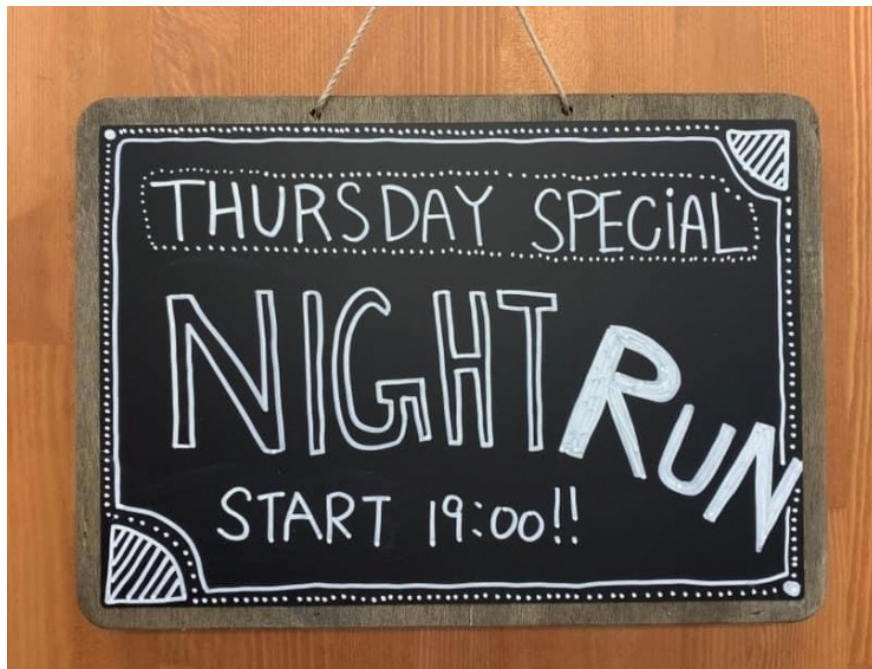 THURSDAY SPECiAL
NIGHT RUN
START 19:00!!